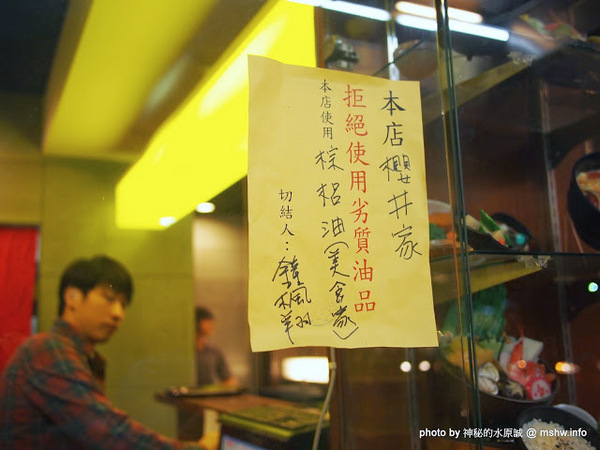 本店櫻井家
拒絕使用劣質油品
本店使用 棕梠油(美食家)
切結人:鍾楓翔
photo by 神秘的水原誠 @ mshw.info